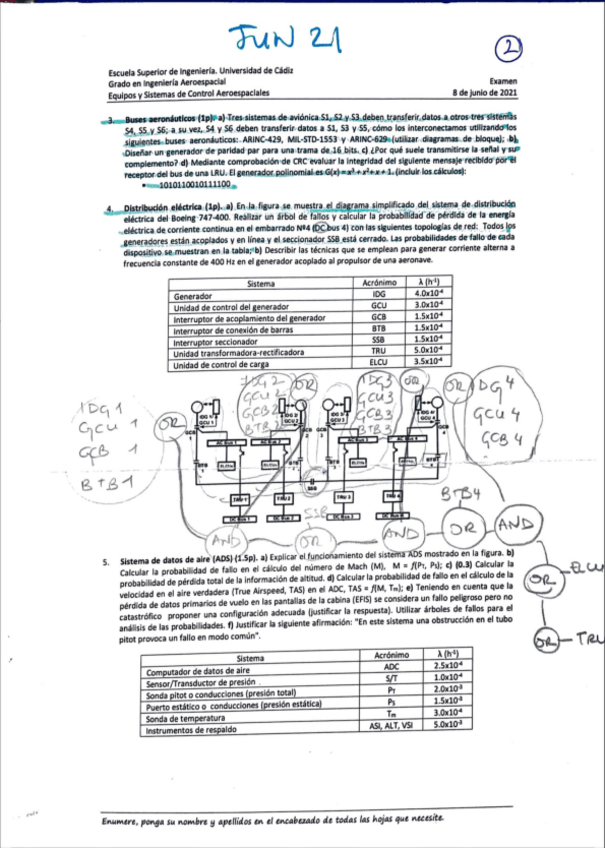 JUN 21
2
Escuela Superior de Ingeniería. Universidad de Cádiz
Grado en Ingeniería Aeroespacial
Examen
Equipos y Sistemas de Control Aeroespaciales
8 de junio de 2021
3. Buses aeronáuticos (1p). a) Tres sistemas de aviónica S1, S2 y S3 deben transferir datos a otros tres sistemas
S4, S5 y S6; a su vez, S4 y S6 deben transferir datos a S1, S3 y S5, cómo los interconectamos utilizando los
siguientes buses aeronáuticos: ARINC-429, MIL-STD-1553 y ARINC-629 (utilizar diagramas de bloque); b)
Diseñar un generador de paridad par para una trama de 16 bits. c) ¿Por qué suele transmitirse la señal y su
complemento? d) Mediante comprobación de CRC evaluar la integridad del siguiente mensaje recibido por el
receptor del bus de una LRU. El generador polinomial es G(x)=x³+x²+x+1. (incluir los cálculos):
• 1010110010111100
4. Distribución eléctrica (1p). a) En la figura se muestra el diagrama simplificado del sistema de distribución
eléctrica del Boeing 747-400. Realizar un árbol de fallos y calcular la probabilidad de pérdida de la energía
eléctrica de corriente continua en el embarrado Nº4 (DC bus 4) con las siguientes topologías de red: Todos los
generadores están acoplados y en línea y el seccionador SSB está cerrado. Las probabilidades de fallo de cada
dispositivo se muestran en la tabla; b) Describir las técnicas que se emplean para generar corriente alterna a
frecuencia constante de 400 Hz en el generador acoplado al propulsor de una aeronave.
Sistema Acrónimo λ (h⁻¹)
Generador IDG 4.0x10⁻⁴
Unidad de control del generador GCU 3.0x10⁻⁴
Interruptor de acoplamiento del generador GCB 1.5x10⁻⁴
Interruptor de conexión de barras BTB 1.5x10⁻⁴
Interruptor seccionador SSB 1.5x10⁻⁴
Unidad transformadora-rectificadora TRU 5.0x10⁻⁴
Unidad de control de carga ELCU 3.5x10⁻⁴
IDG 2 OR IDG 3 OR OR IDG 4
IDG 1 GCU 2 GCU 3 GCU 4
GCU 1 OR GCB 2 GCB 3 GCB 4
GCB 1 BTB 2 BTB 3
BTB 1
BTB4
TRU 1 TRU 2 TRU 3
SSB
AND OR AND OR AND
5. Sistema de datos de aire (ADS) (1.5p). a) Explicar el funcionamiento del sistema ADS mostrado en la figura. b)
Calcular la probabilidad de fallo en el cálculo del número de Mach (M), M = f(Pt, Ps); c) (0.3) Calcular la
probabilidad de pérdida total de la información de altitud. d) Calcular la probabilidad de fallo en el cálculo de la
velocidad en el aire verdadera (True Airspeed, TAS) en el ADC, TAS = f(M, Tm); e) Teniendo en cuenta que la
pérdida de datos primarios de vuelo en las pantallas de la cabina (EFIS) se considera un fallo peligroso pero no
catastrófico proponer una configuración adecuada (justificar la respuesta). Utilizar árboles de fallos para el
análisis de las probabilidades. f) Justificar la siguiente afirmación: "En este sistema una obstrucción en el tubo
pitot provoca un fallo en modo común".
OR ELCU
OR TRU
Sistema Acrónimo λ (h⁻¹)
Computador de datos de aire ADC 2.5x10⁻⁴
Sensor/Transductor de presión S/T 1.0x10⁻⁴
Sonda pitot o conducciones (presión total) PT 2.0x10⁻³
Puerto estático o conducciones (presión estática) Ps 1.5x10⁻³
Sonda de temperatura Tm 3.0x10⁻⁴
Instrumentos de respaldo ASI, ALT, VSI 5.0x10⁻³
Enumere, ponga su nombre y apellidos en el encabezado de todas las hojas que necesite.